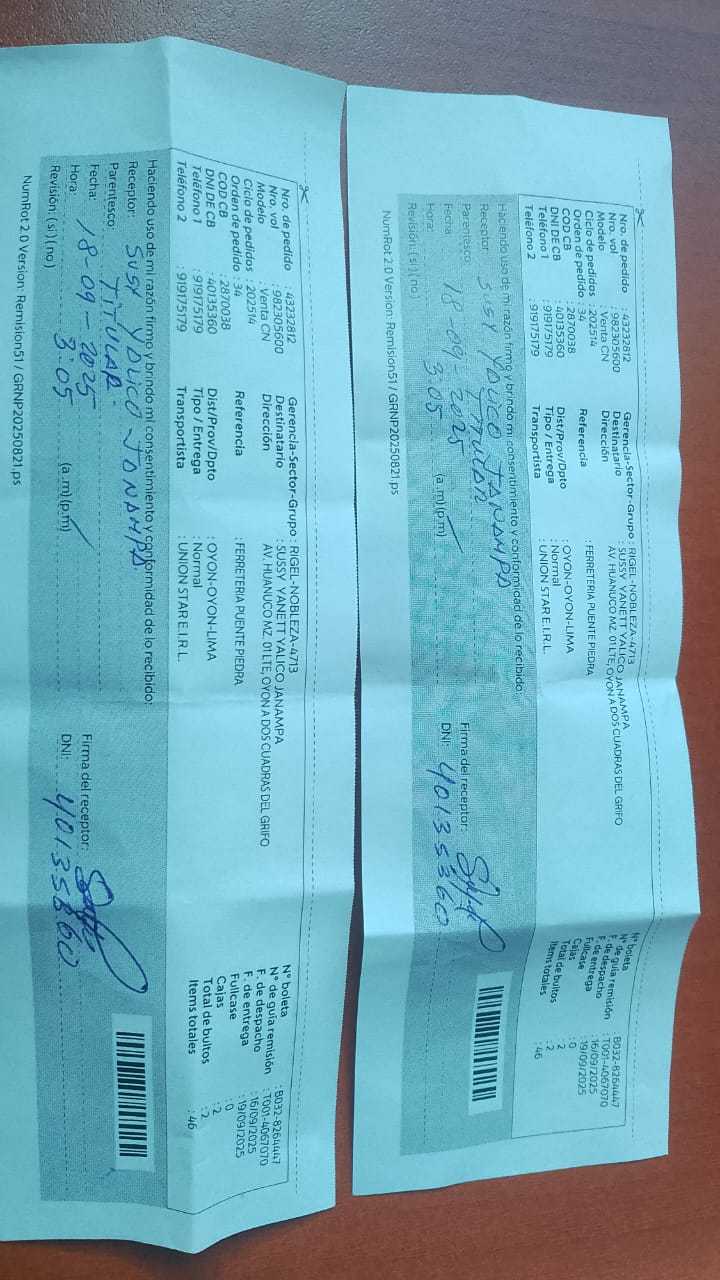 Nro. de pedido : 43232812
Nro. vol : 982305600
Modelo : Venta CN
Ciclo de pedidos : 202514
Orden de pedido : 34
COD CB : 2870038
DNI DE CB : 40135360
Teléfono 1 : 919175179
Teléfono 2 : 919175179
Gerencia-Sector-Grupo : RIGEL-NOBLEZA-4713
Destinatario : SUSSY YANETT YALICO JANAMPA
Dirección : AV. HUANUCO MZ. 01 LTE, OYON A DOS CUADRAS DEL GRIFO
Referencia : FERRETERIA PUENTE PIEDRA
Dist/Prov/Dpto : OYON-OYON-LIMA
Tipo / Entrega : Normal
Transportista : UNION STAR E.I.R.L.
N° boleta : B032-8264447
N° de guía remisión : T001-4067070
F. de despacho : 16/09/2025
F. de entrega : 19/09/2025
Fullcase : 0
Cajas : 2
Total de bultos : 2
Items totales : 46
Haciendo uso de mi razón firmo y brindo mi consentimiento y conformidad de lo recibido:
Receptor: Susy YALICO JANAMPA
Parentesco: TITULAR
Fecha: 18-09-2025
Hora: 3:05 (a.m) (p.m)
Revisión: (si) (no)
Firma del receptor:
DNI: 40135360
NumRot 2.0 Version: Remision51 / GRNP20250821.ps
Nro. de pedido : 43232812
Nro. vol : 982305600
Modelo : Venta CN
Ciclo de pedidos : 202514
Orden de pedido : 34
COD CB : 2870038
DNI DE CB : 40135360
Teléfono 1 : 919175179
Teléfono 2 : 919175179
Gerencia-Sector-Grupo : RIGEL-NOBLEZA-4713
Destinatario : SUSSY YANETT YALICO JANAMPA
Dirección : AV. HUANUCO MZ. 01 LTE, OYON A DOS CUADRAS DEL GRIFO
Referencia : FERRETERIA PUENTE PIEDRA
Dist/Prov/Dpto : OYON-OYON-LIMA
Tipo / Entrega : Normal
Transportista : UNION STAR E.I.R.L.
N° boleta : B032-8264447
N° de guía remisión : T001-4067070
F. de despacho : 16/09/2025
F. de entrega : 19/09/2025
Fullcase : 0
Cajas : 2
Total de bultos : 2
Items totales : 46
Haciendo uso de mi razón firmo y brindo mi consentimiento y conformidad de lo recibido:
Receptor: Susy YALICO JANAMPA
Parentesco: TITULAR
Fecha: 18-09-2025
Hora: 3:05 (a.m) (p.m)
Revisión: (si) (no)
Firma del receptor:
DNI: 40135360
NumRot 2.0 Version: Remision51 / GRNP20250821.ps